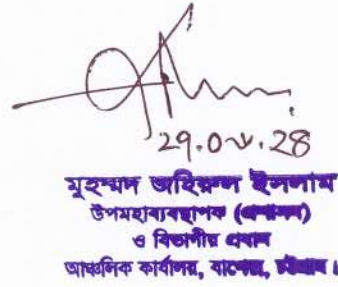 ২৭.০৮.২৪
মুহম্মদ জহিরুল ইসলাম
উপমহাব্যবস্থাপক (প্রশাসন)
ও বিভাগীয় প্রধান
আঞ্চলিক কার্যালয়, চট্টগ্রাম।